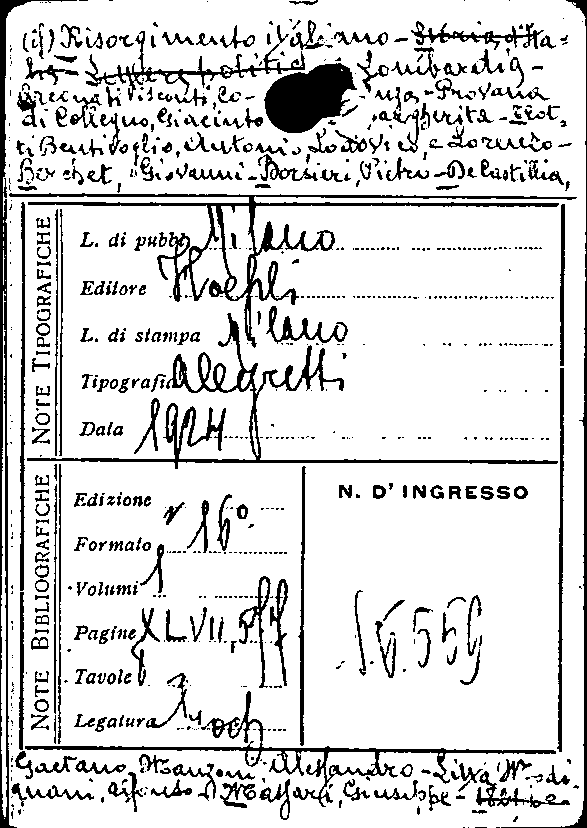 (if) Risorgimento italiano – Storia d'Ita-
lia – Lettere politic Lombardia –
Arconati Visconti, Co- nza – Provana
di Collegno, Giacinto argherita – Trot-
ti Bentivoglio, Antonio, Lodovico, e Lorenzo –
Berchet, Giovanni – Borsieri, Pietro – De Castillia,
NOTE TIPOGRAFICHE
L. di pubb. Milano
Editore Hoepli
L. di stampa Milano
Tipografia Alegretti
Data 1924
NOTE BIBLIOGRAFICHE
Edizione
Formato 16º
Volumi 1
Pagine XLVII,
Tavole
Legatura
N. D'INGRESSO
Gaetano, Manzoni Alessandro –
Giuseppe –